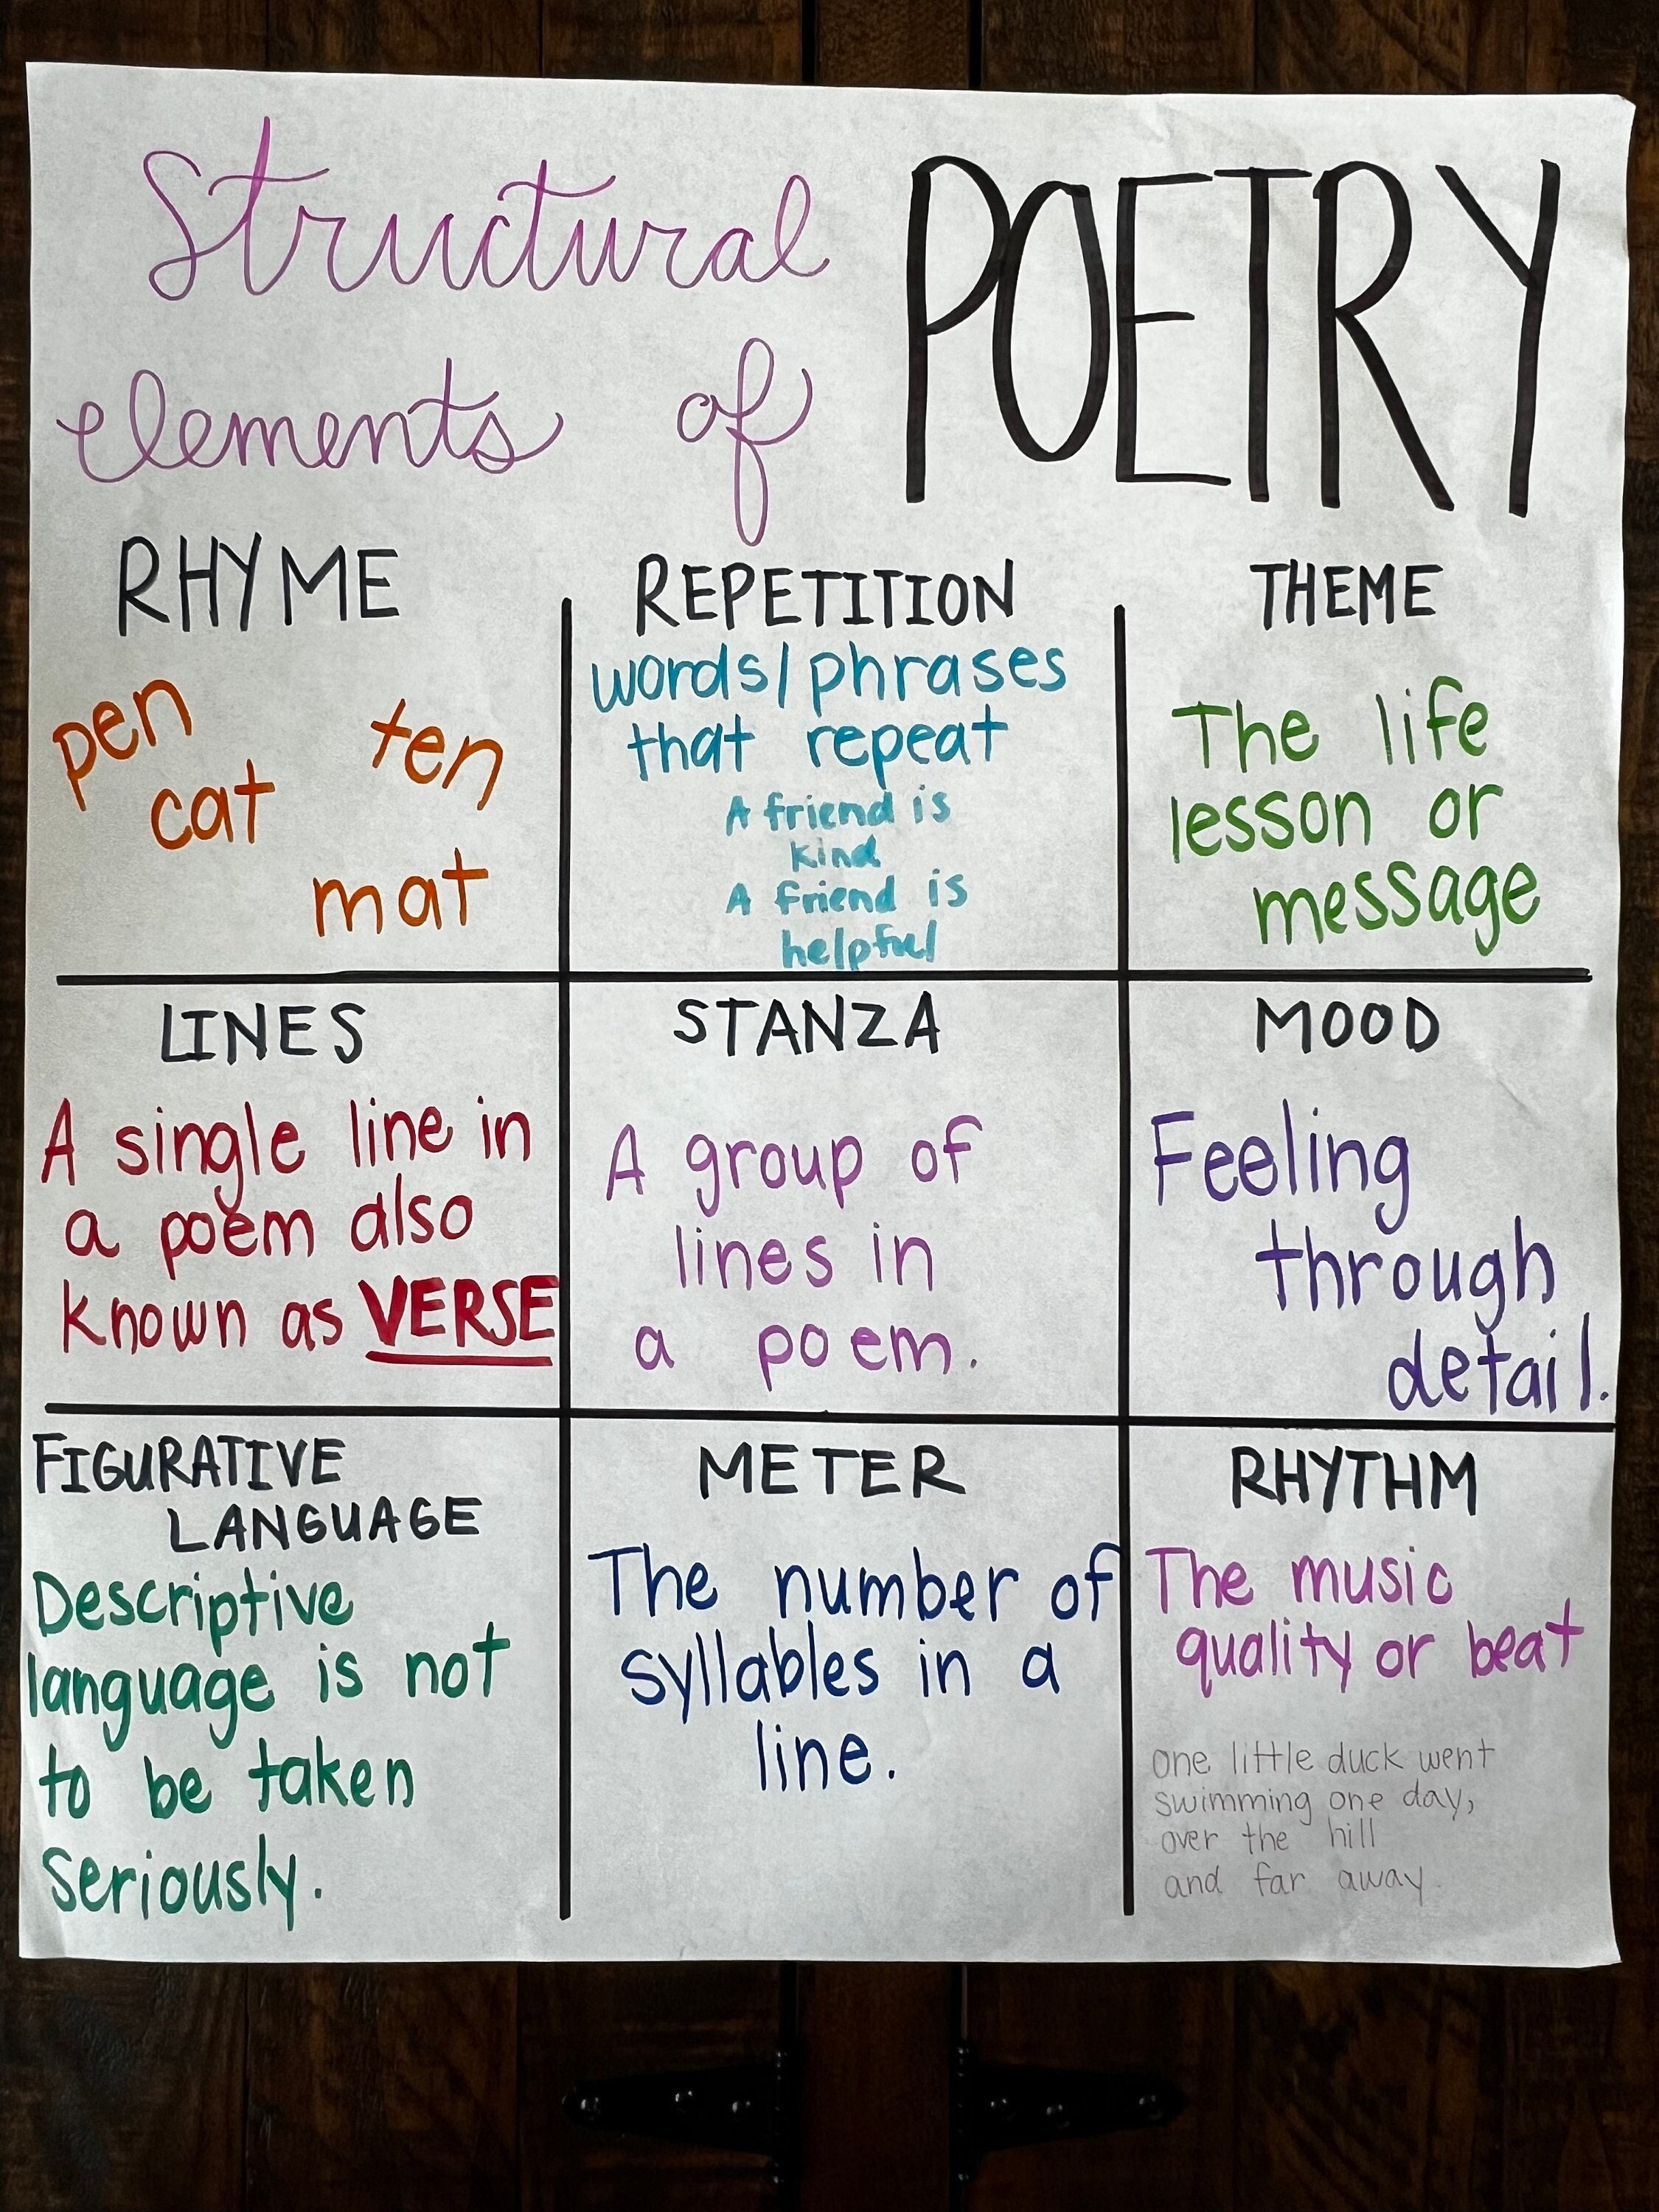 Structural
elements of
POETRY
RHYME
pen ten
cat
mat
REPETITION
words/phrases
that repeat
A friend is
kind
A friend is
helpful
THEME
The life
lesson or
message
LINES
A single line in
a poem also
known as VERSE
STANZA
A group of
lines in
a poem.
MOOD
Feeling
through
detail.
FIGURATIVE
LANGUAGE
Descriptive
language is not
to be taken
seriously.
METER
The number of
syllables in a
line.
RHYTHM
The music
quality or beat
one little duck went
swimming one day,
over the hill
and far away.